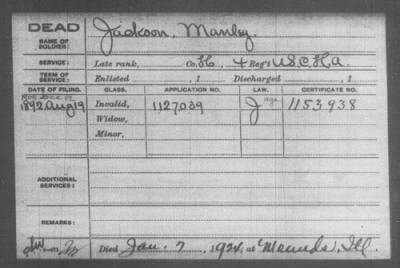 DEAD
NAME OF SOLDIER: Jackson, Manley.
SERVICE: Late rank, Co. H, 4 Reg't U.S.C.H.A.
TERM OF SERVICE: Enlisted , 1 Discharged , 1
DATE OF FILING. CLASS. APPLICATION NO. LAW. CERTIFICATE NO.
1892 Aug 19 Invalid, 1127039 J 1153938
Widow,
Minor,
ADDITIONAL SERVICES:
REMARKS:
Died Jan. 7, 1924, at Ill.